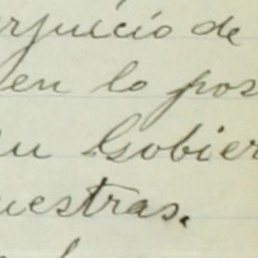 erjuicio de
en lo pos
su Gobier
uestras.